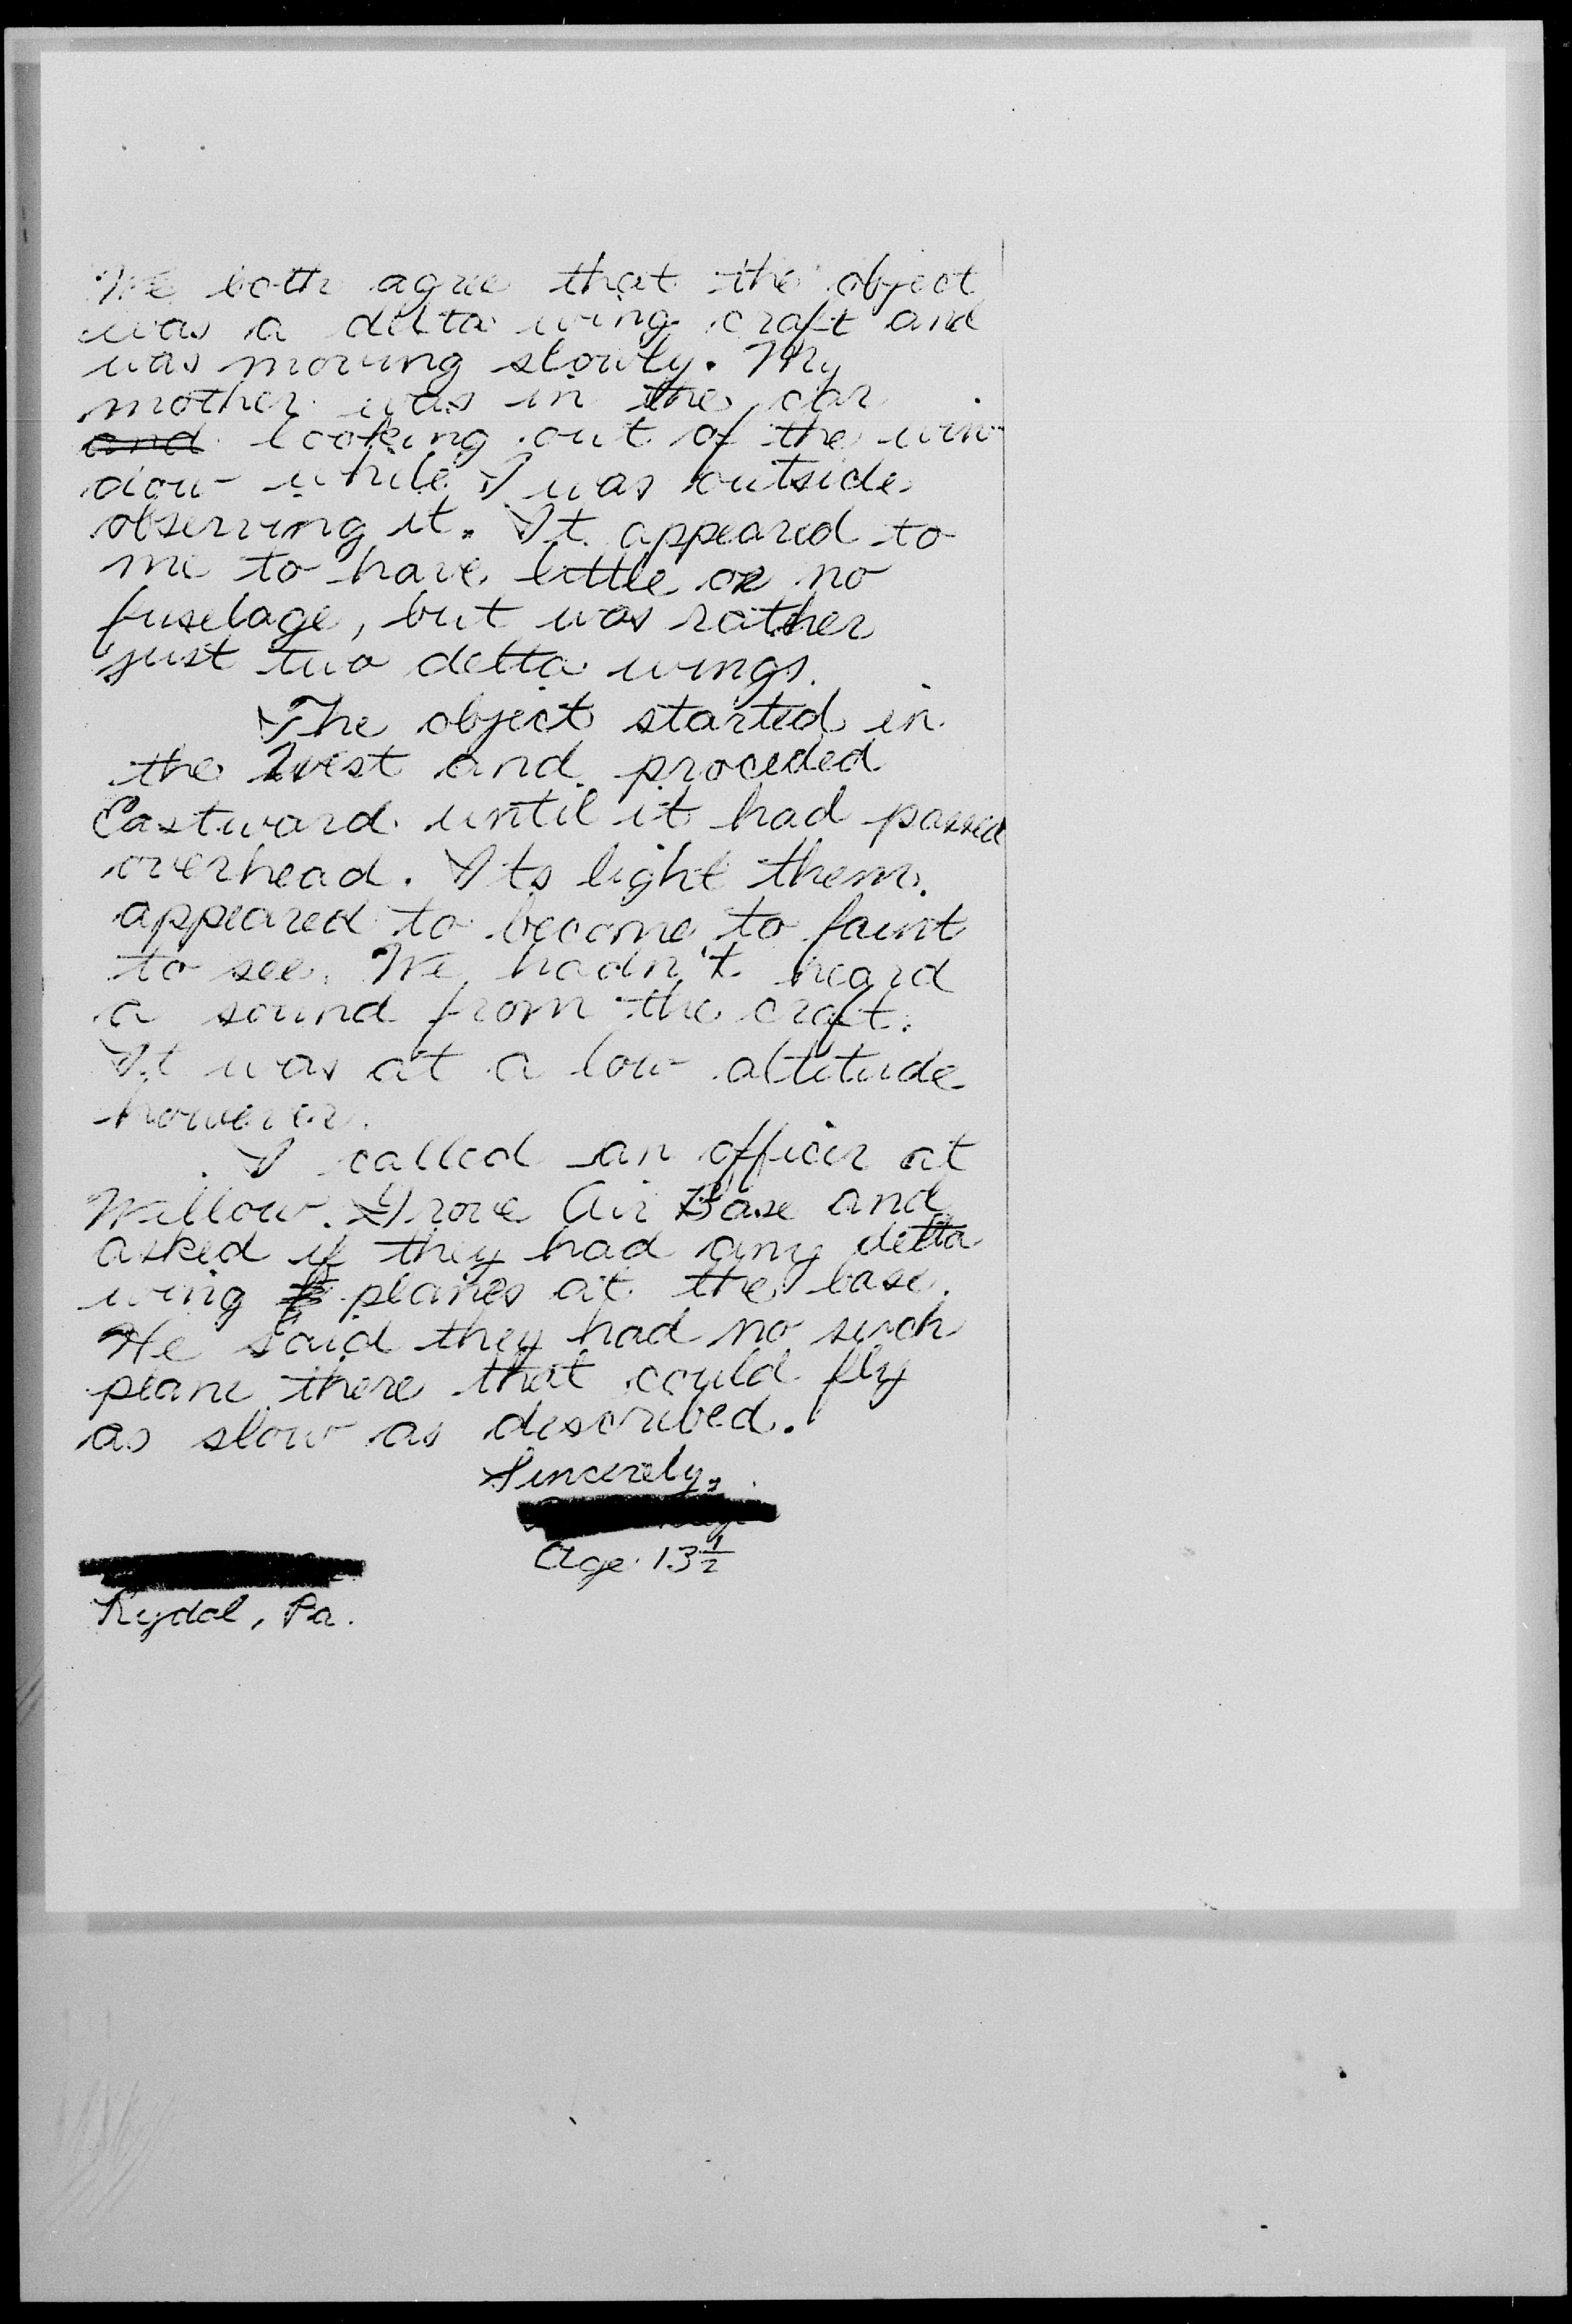 We both agree that the object
was a delta wing craft and
was moving slowly. My
mother was in the car
and looking out of the win
dow while I was outside
observing it. It appeared to
me to have little or no
fuselage, but was rather
just two delta wings.
The object started in
the West and proceded
Eastward until it had passed
overhead. Its light them
appeared to become to faint
to see. We hadn't heard
a sound from the craft.
It was at a low altitude
however.
I called an officer at
Willow Grove Air Base and
asked if they had any delta
wing planes at the base.
He said they had no such
plane there that could fly
as slow as described.
Sincerely,
Age 13 1/2
Rydal, Pa.